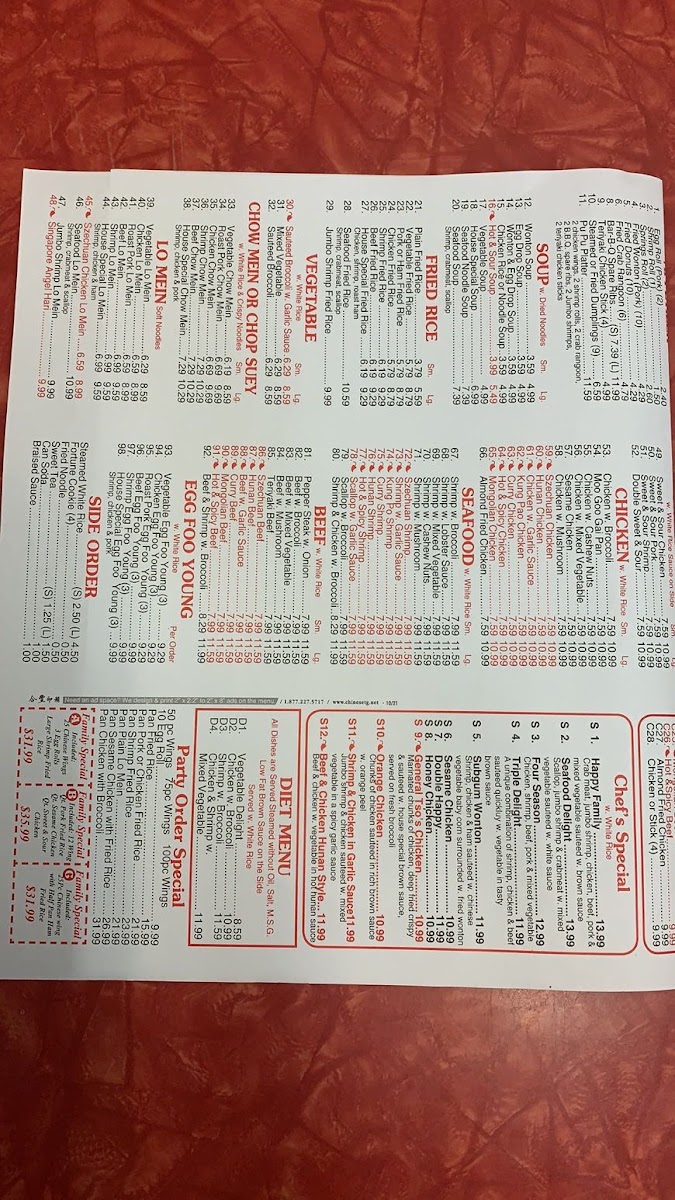 1. Egg Roll (Pork) (2) 2.40
2. Shrimp Roll (1) 1.50
4. Fried Wonton (Pork) (10) 4.29
5. Fried Donuts (10) 4.79
6. Fried Crab Rangoon (6) 4.29
8. Bar-B-Q Spare Ribs (S) 7.39 (L) 11.99
9. Teriyaki Chicken Stick (4) 6.99
10. Steamed or Fried Dumplings (9) 6.59
11. Pu Pu Platter 11.59
2 chicken wing, 2 shrimp rolls, 2 crab rangoon,
2 B.B.Q. spare ribs, 2 Jumbo shrimps,
2 teriyaki chicken sticks
SOUP w. Dried Noodles Sm. Lg.
12. Wonton Soup 3.59 4.99
13. Egg Drop Soup 3.59 4.99
14. Wonton & Egg Drop Soup 3.59 4.99
15. Chicken Rice or Noodle Soup 3.59 4.99
16. Hot & Sour Soup 3.99 5.49
17. Vegetable Soup 4.99
18. House Special Soup 6.99
19. Seafood Soup 7.39
20. Seafood Soup 7.39
Shrimp, crabmeat, scallop
FRIED RICE Sm. Lg.
21. Plain Fried Rice 3.79 6.59
22. Vegetable Fried Rice 5.79 8.59
23. Pork or Ham Fried Rice 5.79 8.79
24. Chicken Fried Rice 5.79 8.79
25. Shrimp Fried Rice 6.19 9.29
26. Beef Fried Rice 6.19 9.29
27. House Special Fried Rice 6.19 9.29
Chicken, shrimp, roast ham
28. Seafood Fried Rice 10.59
Shrimp, crabmeat, scallop
29. Jumbo Shrimp Fried Rice 9.99
VEGETABLE
w. White Rice Sm. Lg.
30. Sauteed Broccoli w. Garlic Sauce 6.29 8.59
31. Mixed Vegetable 6.29 8.59
32. Sauteed Broccoli 6.29 8.59
CHOW MEIN OR CHOP SUEY
w. White Rice & Crispy Noodles Sm. Lg.
33. Vegetable Chow Mein 6.19 8.59
34. Roast Pork Chow Mein 6.69 9.69
35. Chicken Chow Mein 6.69 9.69
36. Shrimp Chow Mein 7.29 10.29
37. Beef Chow Mein 7.29 10.29
38. House Chow Mein 7.29 10.29
Shrimp, chicken & pork
LO MEIN Soft Noodles Sm. Lg.
39. Vegetable Lo Mein 6.29 8.59
40. Chicken Lo Mein 6.59 8.99
41. Roast Pork Lo Mein 6.59 8.99
42. Beef Lo Mein 6.99 9.59
43. Shrimp Lo Mein 6.99 9.59
44. House Special Lo Mein 6.99 9.59
Shrimp, chicken & ham
45. Szechuan Chicken Lo Mein 6.59 8.99
46. Seafood Lo Mein 10.99
Shrimp, crabmeat & scallop
47. Jumbo Shrimp Lo Mein 9.99
48. Singapore Angel Hair 9.99
w. White Rice Sauce on Side
49. Sweet & Sour Chicken 7.59 10.99
50. Sweet & Sour Pork 7.59 10.99
51. Sweet & Sour Shrimp
52. Double Sweet & Sour
CHICKEN w. White Rice Sm. Lg.
53. Chicken w. Broccoli 7.59 10.99
54. Moo Goo Gai Pan 7.59 10.99
55. Chicken w. Cashew Nuts 7.59 10.99
56. Chicken w. Mixed Vegetable 7.59 10.99
57. Sesame Chicken 7.59 10.99
58. Chicken w. Mushroom 7.59 10.99
59. Szechuan Chicken 7.59 10.99
60. Hunan Chicken 7.59 10.99
61. Chicken w. Garlic Sauce 7.59 10.99
62. Kung Po Chicken 7.59 10.99
63. Curry Chicken 7.59 10.99
64. Hot & Spicy Chicken 7.59 10.99
65. Mongolian Chicken 7.59 10.99
66. Almond Fried Chicken 7.59 10.99
SEAFOOD w. White Rice Sm. Lg.
67. Shrimp w. Broccoli 7.99 11.59
68. Shrimp w. Lobster Sauce 7.99 11.59
69. Shrimp w. Mixed Vegetable 7.99 11.59
70. Shrimp w. Cashew Nuts 7.99 11.59
71. Shrimp w. Mushroom 7.99 11.59
72. Szechuan Shrimp 7.99 11.59
73. Shrimp w. Garlic Sauce 7.99 11.59
74. Kung Po Shrimp 7.99 11.59
75. Curry Shrimp 7.99 11.59
76. Hunan Shrimp 7.99 11.59
77. Hot & Spicy Shrimp 7.99 11.59
78. Scallop w. Garlic Sauce 7.99 11.59
79. Scallop w. Broccoli 7.99 11.59
80. Shrimp & Chicken w. Broccoli 8.29 11.59
BEEF w. White Rice Sm. Lg.
81. Pepper Steak w. Onion 7.99 11.59
82. Beef w. Broccoli 7.99 11.59
83. Beef w. Mixed Vegetable 7.99 11.59
84. Beef w. Mushroom 7.99 11.59
85. Teriyaki Beef 7.99 11.59
86. Szechuan Beef 7.99 11.59
87. Hunan Beef 7.99 11.59
88. Beef w. Garlic Sauce 7.99 11.59
89. Curry Beef 7.99 11.59
90. Mongolian Beef 7.99 11.59
91. Hot & Spicy Beef 7.99 11.59
92. Beef & Shrimp w. Broccoli 8.29 11.99
EGG FOO YOUNG
w. White Rice Per Order
93. Vegetable Egg Foo Young (3) 9.29
94. Chicken Egg Foo Young (3) 9.29
95. Roast Pork Egg Foo Young (3) 9.29
96. Beef Egg Foo Young (3) 9.99
97. Shrimp Egg Foo Young (3) 9.99
98. House Special Egg Foo Young (3) 9.99
Shrimp, chicken & pork
SIDE ORDER
Steamed White Rice (S) 2.50 (L) 4.50
Fortune Cookie (4) 0.50
Fried Noodle 0.50
Sweet Tea
Can Soda (S) 1.25 (L) 1.50
Braised Sauce 1.00
C26. Hot & Spicy Beef 9.99
C27. Almond Chicken 9.99
C28. Chicken or Stick (4) 9.99
Chef's Special
w. White Rice
S 1. Happy Family 13.99
Crab meat, jumbo shrimp, chicken, beef, pork &
mixed vegetable sauteed w. brown sauce
S 2. Seafood Delight 13.99
Scallop, jumbo shrimp & crabmeat w. mixed
vegetable sauteed w. white sauce
S 3. Four Season 12.99
Chicken, shrimp, beef, pork & mixed vegetable
S 4. Triple Delight 11.99
A unique combination of shrimp, chicken & beef
sauteed quickly w. vegetable in tasty
brown sauce
S 5. Subgum Wonton 11.99
Shrimp, chicken & ham sauteed w. chinese
vegetable baby corn surrounded w. fried wonton
S 6. Sesame Chicken 10.99
S 7. Double Happy 11.99
S 8. Honey Chicken 10.99
S 9. General Tso's Chicken 10.99
Tender chunks of chicken, deep fried crispy
& sauteed w. house special brown sauce,
served on fresh broccoli
S10. Orange Chicken 10.99
Chunks of chicken sauteed in rich brown sauce
w. orange peel
S11. Shrimp & Chicken in Garlic Sauce 11.99
Jumbo Shrimp & chicken sauteed w. mixed
vegetable in a spicy garlic sauce
S12. Beef & Chicken Hunan Style 11.99
Beef & chicken w. vegetable in hot hunan sauce
DIET MENU
All Dishes are Served Steamed without Oil, Salt, M.S.G.
Low Fat Brown Sauce on the Side
Served w. White Rice
D1. Vegetable Delight 8.59
D2. Chicken w. Broccoli 10.99
D3. Shrimp w. Broccoli 11.59
D4. Chicken & Shrimp w.
Mixed Vegetable 11.99
Party Order Special
50 pc Wings 75pc Wings 100pc Wings
10 Egg Roll 9.99
Pan Fried Rice 15.99
Pan Pork or Chicken Fried Rice 21.99
Pan Shrimp Fried Rice 23.99
Pan Plain Lo Mein 21.99
Pan Sesame Chicken with Fried Rice 26.99
Pan Chicken with Fried Rice 21.99
Family Special A
Included:
25 Chinese Wings
3 Egg Rolls
Large Shrimp Fried
Rice
$31.99
Family Special B
Included:
Qt. Pork Fried Rice
Qt. Sesame Chicken
Qt. Sweet & Sour
Chicken
$35.99
Family Special C
Included:
25Pc Chinese wing
with Half Pan Ham
Fried Rice
$31.99
Need an ad space? We design & print 2" x 2.2" to 2" x 8" ads on the menu / 1.877.237.5717 / www.chinesetg.net - 10/21